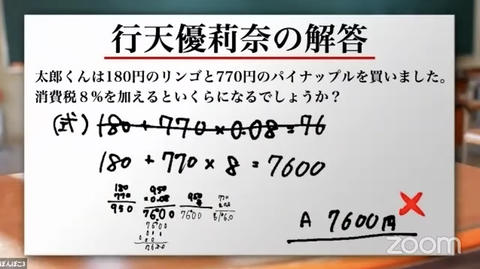 行天優莉奈の解答
太郎くんは180円のリンゴと770円のパイナップルを買いました。
消費税8%を加えるといくらになるでしょうか?
(式) 180+770×0.08=76
180+770×8=7600
180
770
950
950
×0.08
7600
7600
7600
A 7600円
zoom
ぽんぽこ3